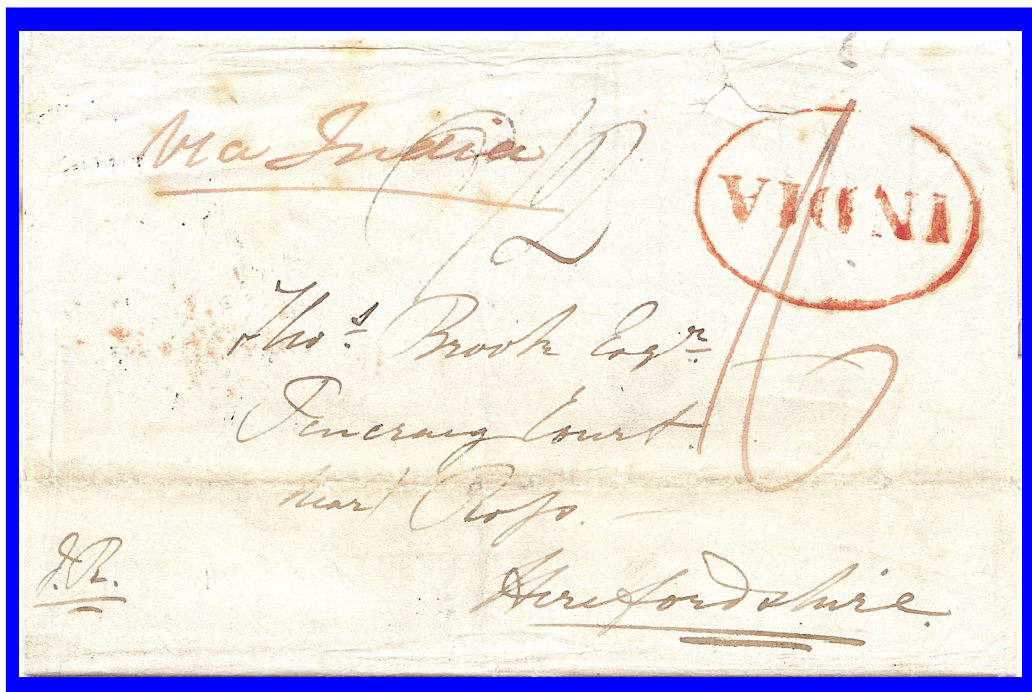 via India
INDIA
1/2
Thos. Brook Esqr
Pencraig Court
near Ross.
J.R.
Herefordshire.